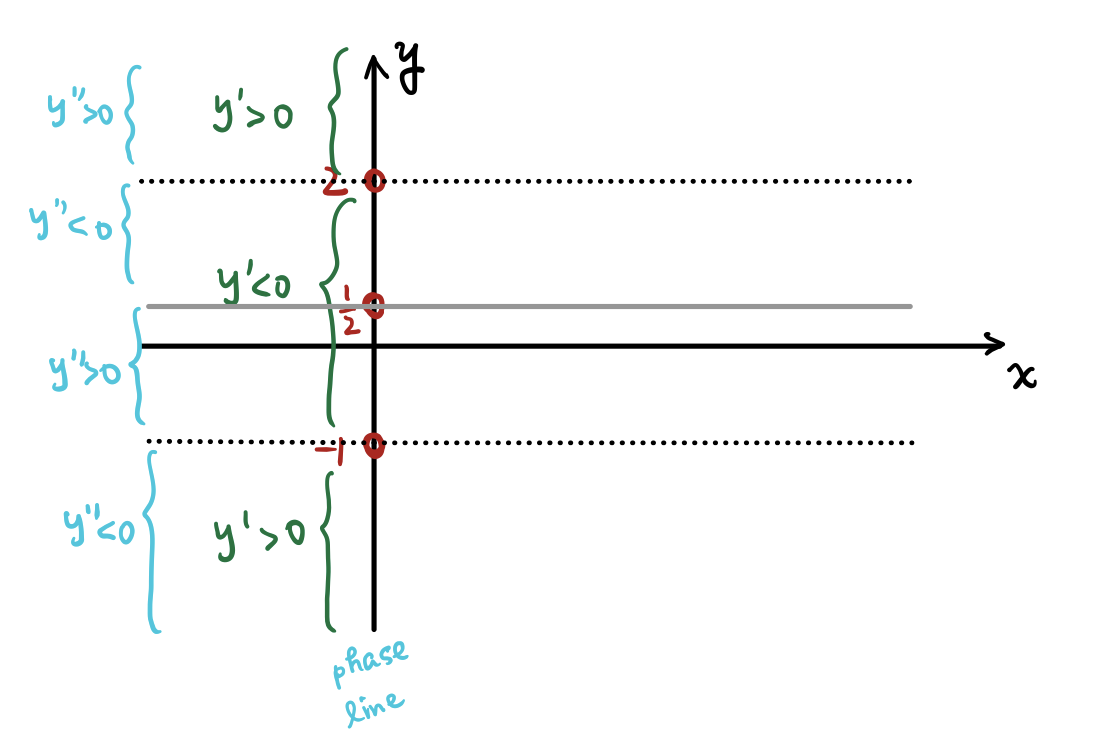 y
y''>0
y'>0
2
y''<0
y'<0
1/2
y''>0
x
-1
y''<0
y'>0
phase
line